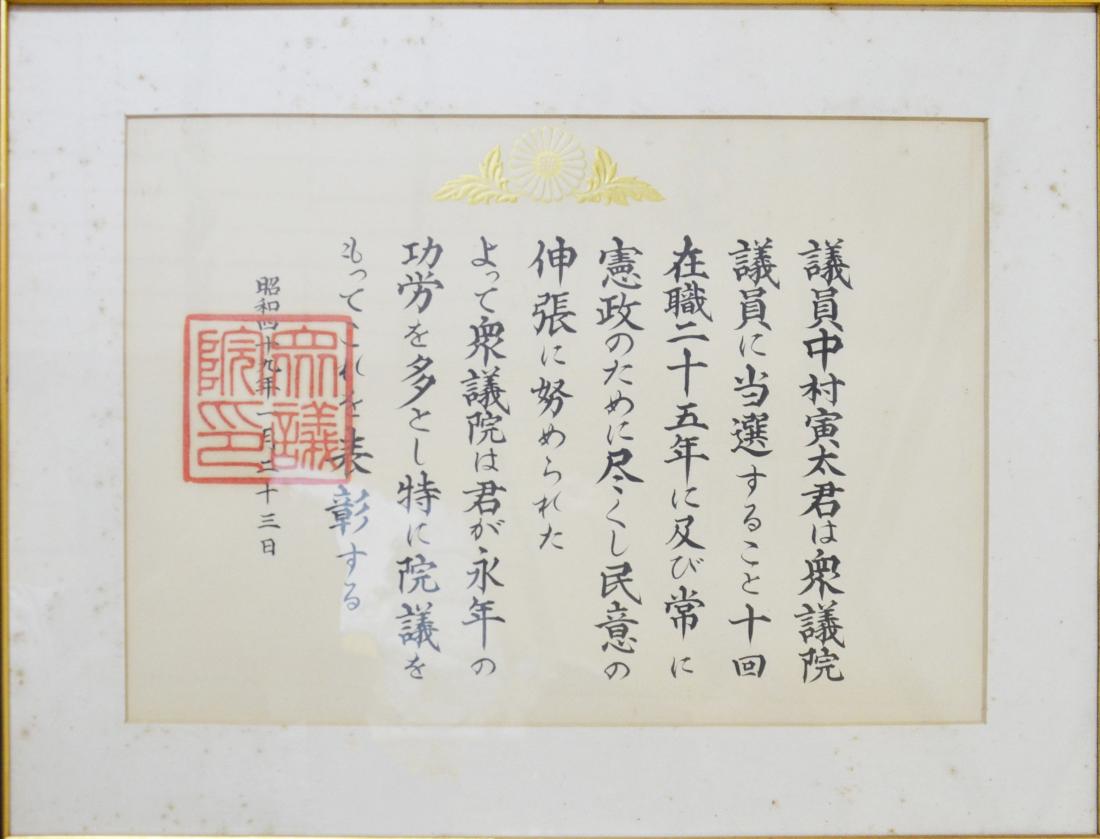 議員中村寅太君は衆議院
議員に当選すること十回
在職二十五年に及び常に
憲政のために尽くし民意の
伸張に努められた
よって衆議院は君が永年の
功労を多とし特に院議を
もってこれを表彰する
昭和四十九年一月二十三日
衆議
院印